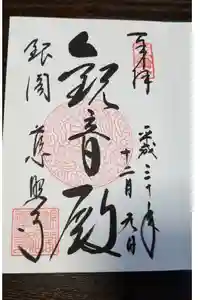 奉拝
平成三十年
十二月九日
観音殿
銀閣
慈照寺